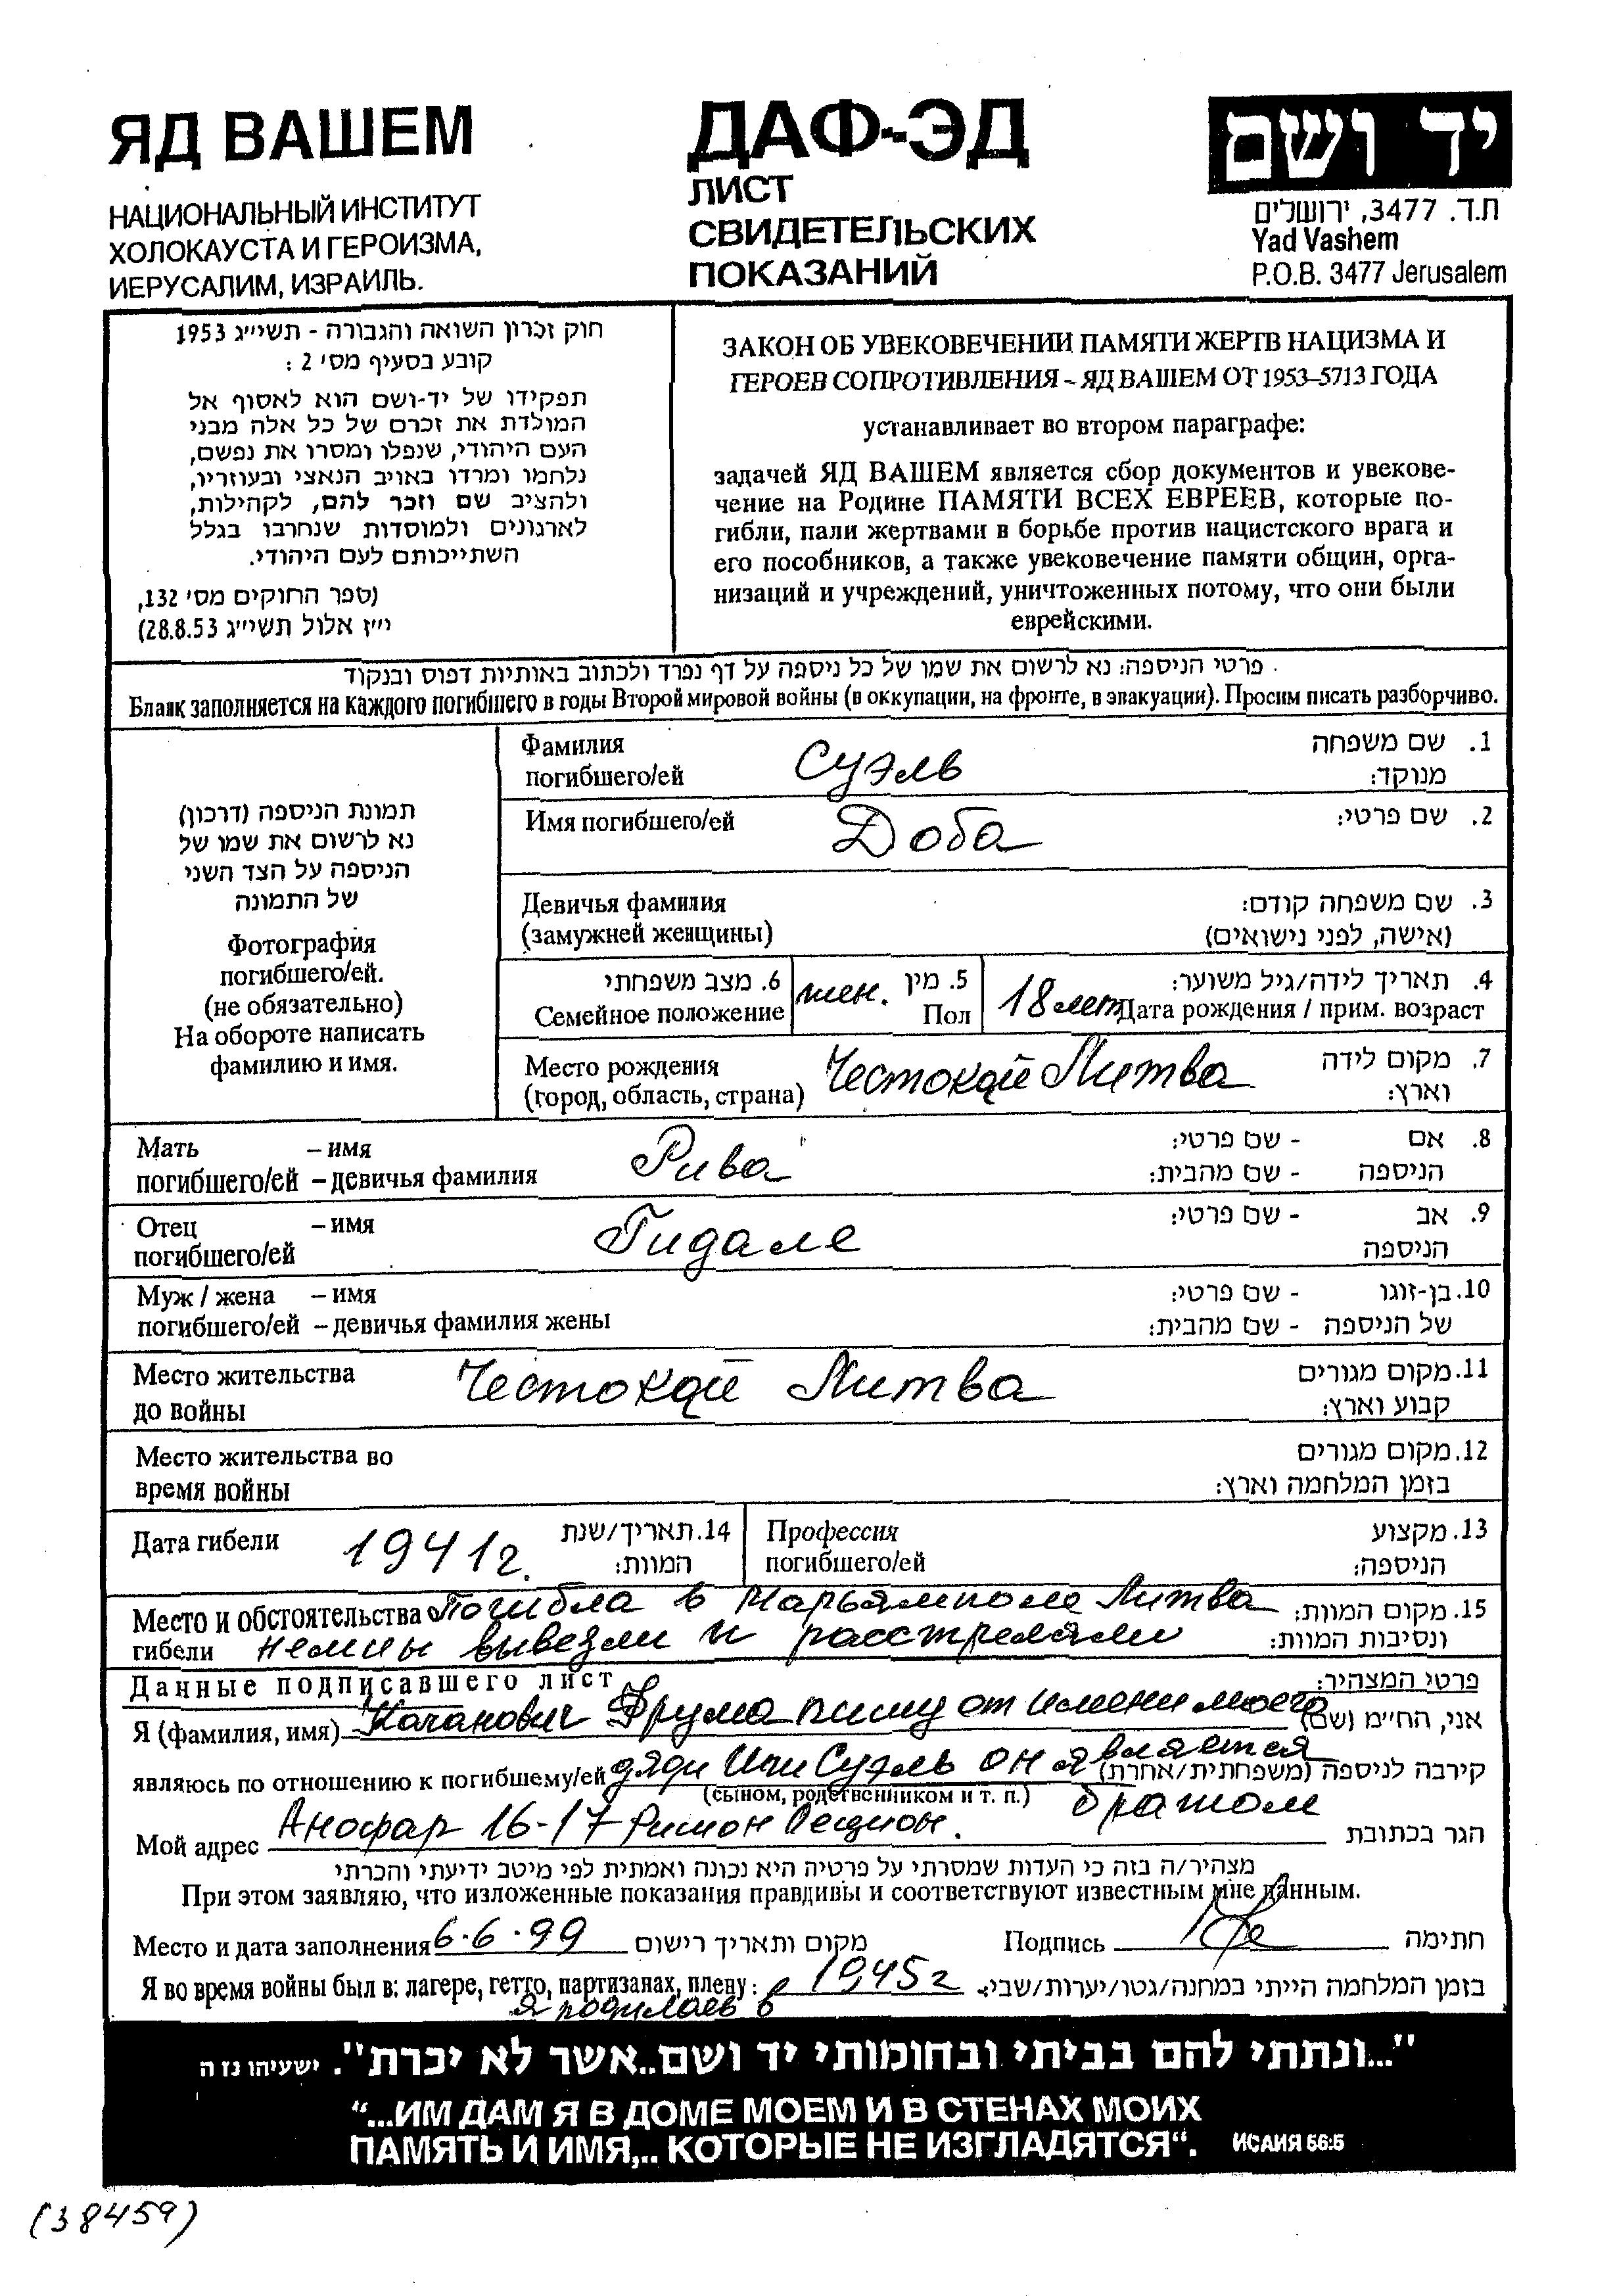 ЯД ВАШЕМ
НАЦИОНАЛЬНЫЙ ИНСТИТУТ
ХОЛОКАУСТА И ГЕРОИЗМА,
ИЕРУСАЛИМ, ИЗРАИЛЬ.
ДАФ-ЭД
ЛИСТ
СВИДЕТЕЛЬСКИХ
ПОКАЗАНИЙ
יד ושם
ת.ד. 3477, ירושלים
Yad Vashem
P.O.B. 3477 Jerusalem
חוק זכרון השואה והגבורה - תשי״ג 1953
קובע בסעיף מס׳ 2 :
תפקידו של יד-ושם הוא לאסוף אל
המולדת את זכרם של כל אלה מבני
העם היהודי, שנפלו ומסרו את נפשם,
נלחמו ומרדו באויב הנאצי ובעוזריו,
ולהציב שם וזכר להם, לקהילות,
לארגונים ולמוסדות שנחרבו בגלל
השתייכותם לעם היהודי.
(ספר החוקים מס׳ 132,
י״ז אלול תשי״ג 28.8.53)
ЗАКОН ОБ УВЕКОВЕЧЕНИИ ПАМЯТИ ЖЕРТВ НАЦИЗМА И
ГЕРОЕВ СОПРОТИВЛЕНИЯ - ЯД ВАШЕМ ОТ 1953-5713 ГОДА
устанавливает во втором параграфе:
задачей ЯД ВАШЕМ является сбор документов и увекове-
чение на Родине ПАМЯТИ ВСЕХ ЕВРЕЕВ, которые по-
гибли, пали жертвами в борьбе против нацистского врага и
его пособников, а также увековечение памяти общин, орга-
низаций и учреждений, уничтоженных потому, что они были
еврейскими.
פרטי הניספה: נא לרשום את שמו של כל ניספה על דף נפרד ולכתוב באותיות דפוס ובנקוד
Бланк заполняется на каждого погибшего в годы Второй мировой войны (в оккупации, на фронте, в эвакуации). Просим писать разборчиво.
תמונת הניספה (דרכון)
נא לרשום את שמו של
הניספה על הצד השני
של התמונה
Фотография
погибшего/ей.
(не обязательно)
На обороте написать
фамилию и имя.
Фамилия Суэль 1. שם משפחה
погибшего/ей מנוקד:
Имя погибшего/ей Доба 2. שם פרטי:
Девичья фамилия 3. שם משפחה קודם:
(замужней женщины) (אישה, לפני נישואים)
6. מצב משפחתי жен. 5. מין 18 лет 4. תאריך לידה/גיל משוער:
Семейное положение Пол Дата рождения / прим. возраст
Место рождения Честокай Литва 7. מקום לידה
(город, область, страна) וארץ:
Мать – имя Рива 8. אם - שם פרטי:
погибшего/ей – девичья фамилия הניספה - שם מהבית:
Отец – имя Гидале 9. אב - שם פרטי:
погибшего/ей הניספה
Муж / жена – имя 10. בן-זוגו - שם פרטי:
погибшего/ей – девичья фамилия жены של הניספה - שם מהבית:
Место жительства Честокай Литва 11. מקום מגורים
до войны קבוע וארץ:
Место жительства во 12. מקום מגורים
время войны בזמן המלחמה וארץ:
Дата гибели 1941г. 14. תאריך/שנת Профессия 13. מקצוע
המוות: погибшего/ей הניספה:
Место и обстоятельства Погибла в Марьямполе Литва 15. מקום המוות:
гибели немцы вывезли и расстреляли ונסיבות המוות:
Данные подписавшего лист פרטי המצהיר:
Я (фамилия, имя) Каганович Фрума пишу от имени моего אני, הח״מ (שם)
являюсь по отношению к погибшему/ей дяди Ици Суэль он является קירבה לניספה (משפחתית/אחרת)
(сыном, родственником и т. п.) братом
Мой адрес 16-17 Ришон Лецион. הגר בכתובת
מצהיר/ה בזה כי העדות שמסרתי על פרטיה היא נכונה ואמתית לפי מיטב ידיעתי והכרתי
При этом заявляю, что изложенные показания правдивы и соответствуют известным мне данным.
Место и дата заполнения 6.6.99 מקום ותאריך רישום Подпись חתימה
Я во время войны был в: лагере, гетто, партизанах, плену: 1945г בזמן המלחמה הייתי במחנה/גטו/יערות/שבי:
я родилась в
"...ונתתי להם בביתי ובחומותי יד ושם..אשר לא יכרת". ישעיהו נו ה
"...ИМ ДАМ Я В ДОМЕ МОЕМ И В СТЕНАХ МОИХ
ПАМЯТЬ И ИМЯ,.. КОТОРЫЕ НЕ ИЗГЛАДЯТСЯ". ИСАИЯ 56:5
(38459)